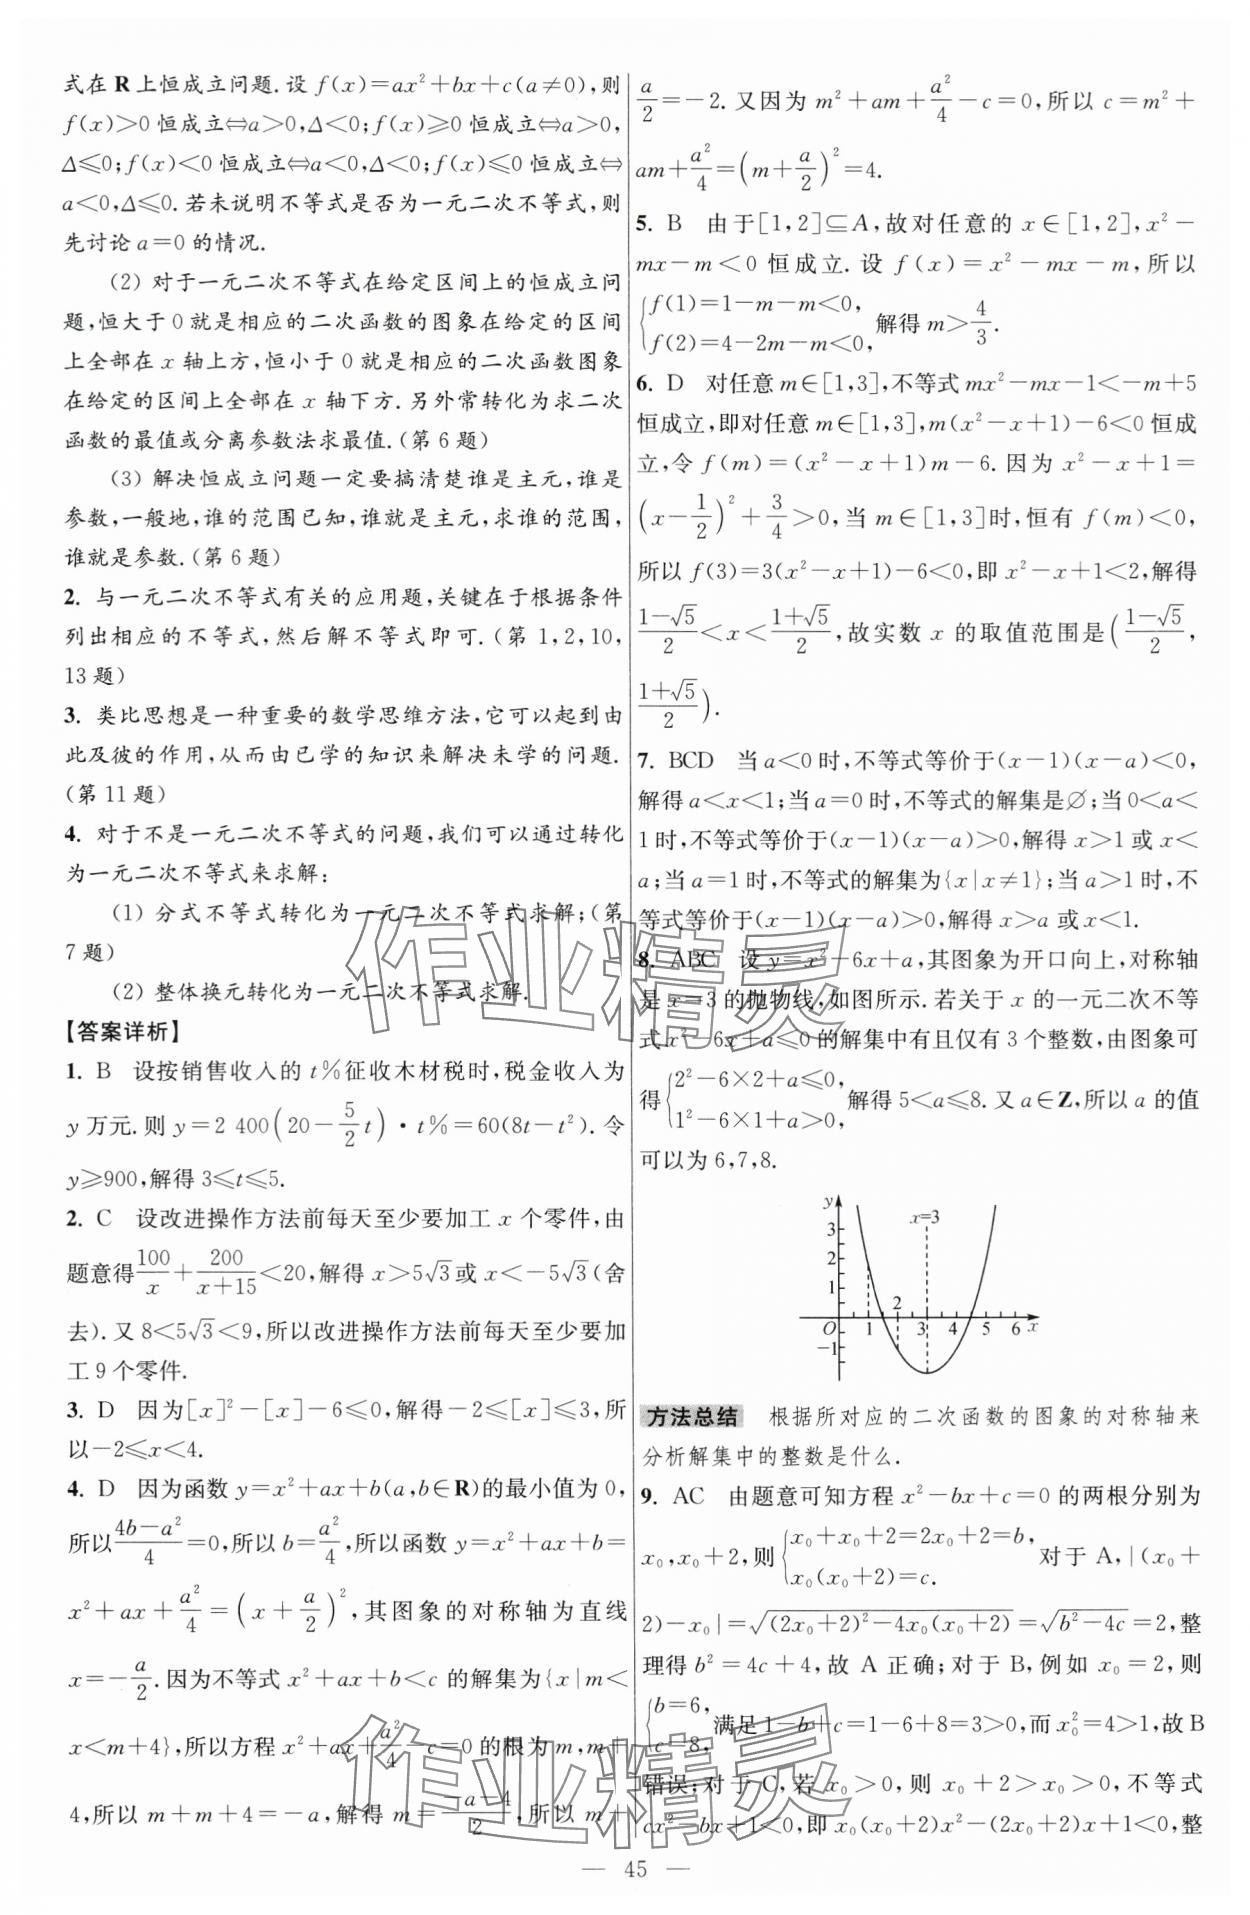 式在 R 上恒成立问题.设 f(x)=ax²+bx+c(a≠0),则
f(x)>0 恒成立⇔a>0,Δ<0;f(x)≥0 恒成立⇔a>0,
Δ≤0;f(x)<0 恒成立⇔a<0,Δ<0;f(x)≤0 恒成立⇔
a<0,Δ≤0.若未说明不等式是否为一元二次不等式,则
先讨论 a=0 的情况.
(2) 对于一元二次不等式在给定区间上的恒成立问
题,恒大于 0 就是相应的二次函数的图象在给定的区间
上全部在 x 轴上方,恒小于 0 就是相应的二次函数图象
在给定的区间上全部在 x 轴下方.另外常转化为求二次
函数的最值或分离参数法求最值.(第 6 题)
(3) 解决恒成立问题一定要搞清楚谁是主元,谁是
参数,一般地,谁的范围已知,谁就是主元,求谁的范围,
谁就是参数.(第 6 题)
2. 与一元二次不等式有关的应用题,关键在于根据条件
列出相应的不等式,然后解不等式即可.(第 1,2,10,
13 题)
3. 类比思想是一种重要的数学思维方法,它可以起到由
此及彼的作用,从而由已学的知识来解决未学的问题.
(第 11 题)
4. 对于不是一元二次不等式的问题,我们可以通过转化
为一元二次不等式来求解:
(1) 分式不等式转化为一元二次不等式求解;(第
7 题)
(2) 整体换元转化为一元二次不等式求解.
【答案详析】
1. B 设按销售收入的 t%征收木材税时,税金收入为
y 万元.则 y=2 400(20-5/2 t)·t%=60(8t-t²).令
y≥900,解得 3≤t≤5.
2. C 设改进操作方法前每天至少要加工 x 个零件,由
题意得100/x+200/(x+15)<20,解得 x>5√3或 x<-5√3(舍
去).又 8<5√3<9,所以改进操作方法前每天至少要加
工 9 个零件.
3. D 因为[x]²-[x]-6≤0,解得-2≤[x]≤3,所
以-2≤x<4.
4. D 因为函数 y=x²+ax+b(a,b∈R)的最小值为 0,
所以(4b-a²)/4=0,所以 b=a²/4,所以函数 y=x²+ax+b=
x²+ax+a²/4=(x+a/2)²,其图象的对称轴为直线
x=-a/2.因为不等式 x²+ax+b<c 的解集为{x|m<
x<m+4},所以方程 x²+ax+a²/4-c=0 的根为 m,m+
4,所以 m+m+4=-a,解得 m=(-a-4)/2,所以 m+
a/2=-2.又因为 m²+am+a²/4-c=0,所以 c=m²+
am+a²/4=(m+a/2)²=4.
5. B 由于[1,2]⊆A,故对任意的 x∈[1,2],x²-
mx-m<0 恒成立.设 f(x)=x²-mx-m,所以
{f(1)=1-m-m<0,
f(2)=4-2m-m<0, 解得 m>4/3.
6. D 对任意 m∈[1,3],不等式 mx²-mx-1<-m+5
恒成立,即对任意 m∈[1,3],m(x²-x+1)-6<0 恒成
立,令 f(m)=(x²-x+1)m-6.因为 x²-x+1=
(x-1/2)²+3/4>0,当 m∈[1,3]时,恒有 f(m)<0,
所以 f(3)=3(x²-x+1)-6<0,即 x²-x+1<2,解得
(1-√5)/2<x<(1+√5)/2,故实数 x 的取值范围是((1-√5)/2,
(1+√5)/2).
7. BCD 当 a<0 时,不等式等价于(x-1)(x-a)<0,
解得 a<x<1;当 a=0 时,不等式的解集是∅;当 0<a<
1 时,不等式等价于(x-1)(x-a)>0,解得 x>1 或 x<
a;当 a=1 时,不等式的解集为{x|x≠1};当 a>1 时,不
等式等价于(x-1)(x-a)>0,解得 x>a 或 x<1.
8. ABC 设 y=x²-6x+a,其图象为开口向上,对称轴
是 x=3 的抛物线,如图所示.若关于 x 的一元二次不等
式 x²-6x+a≤0 的解集中有且仅有 3 个整数,由图象可
得{2²-6×2+a≤0,
1²-6×1+a>0, 解得 5<a≤8.又 a∈Z,所以 a 的值
可以为 6,7,8.
y
x=3
3
2
1
2
O 1 3 4 5 6 x
-1
方法总结 根据所对应的二次函数的图象的对称轴来
分析解集中的整数是什么.
9. AC 由题意可知方程 x²-bx+c=0 的两根分别为
x₀,x₀+2,则{x₀+x₀+2=2x₀+2=b,
x₀(x₀+2)=c. 对于 A,|(x₀+
2)-x₀|=√((2x₀+2)²-4x₀(x₀+2))=√(b²-4c)=2,整
理得 b²=4c+4,故 A 正确;对于 B,例如 x₀=2,则
{b=6,
c=8, 满足 1-b+c=1-6+8=3>0,而 x₀²=4>1,故 B
错误;对于 C,若 x₀>0,则 x₀+2>x₀>0,不等式
cx²-bx+1<0,即 x₀(x₀+2)x²-(2x₀+2)x+1<0,整
— 45 —
作业精灵
作业精灵